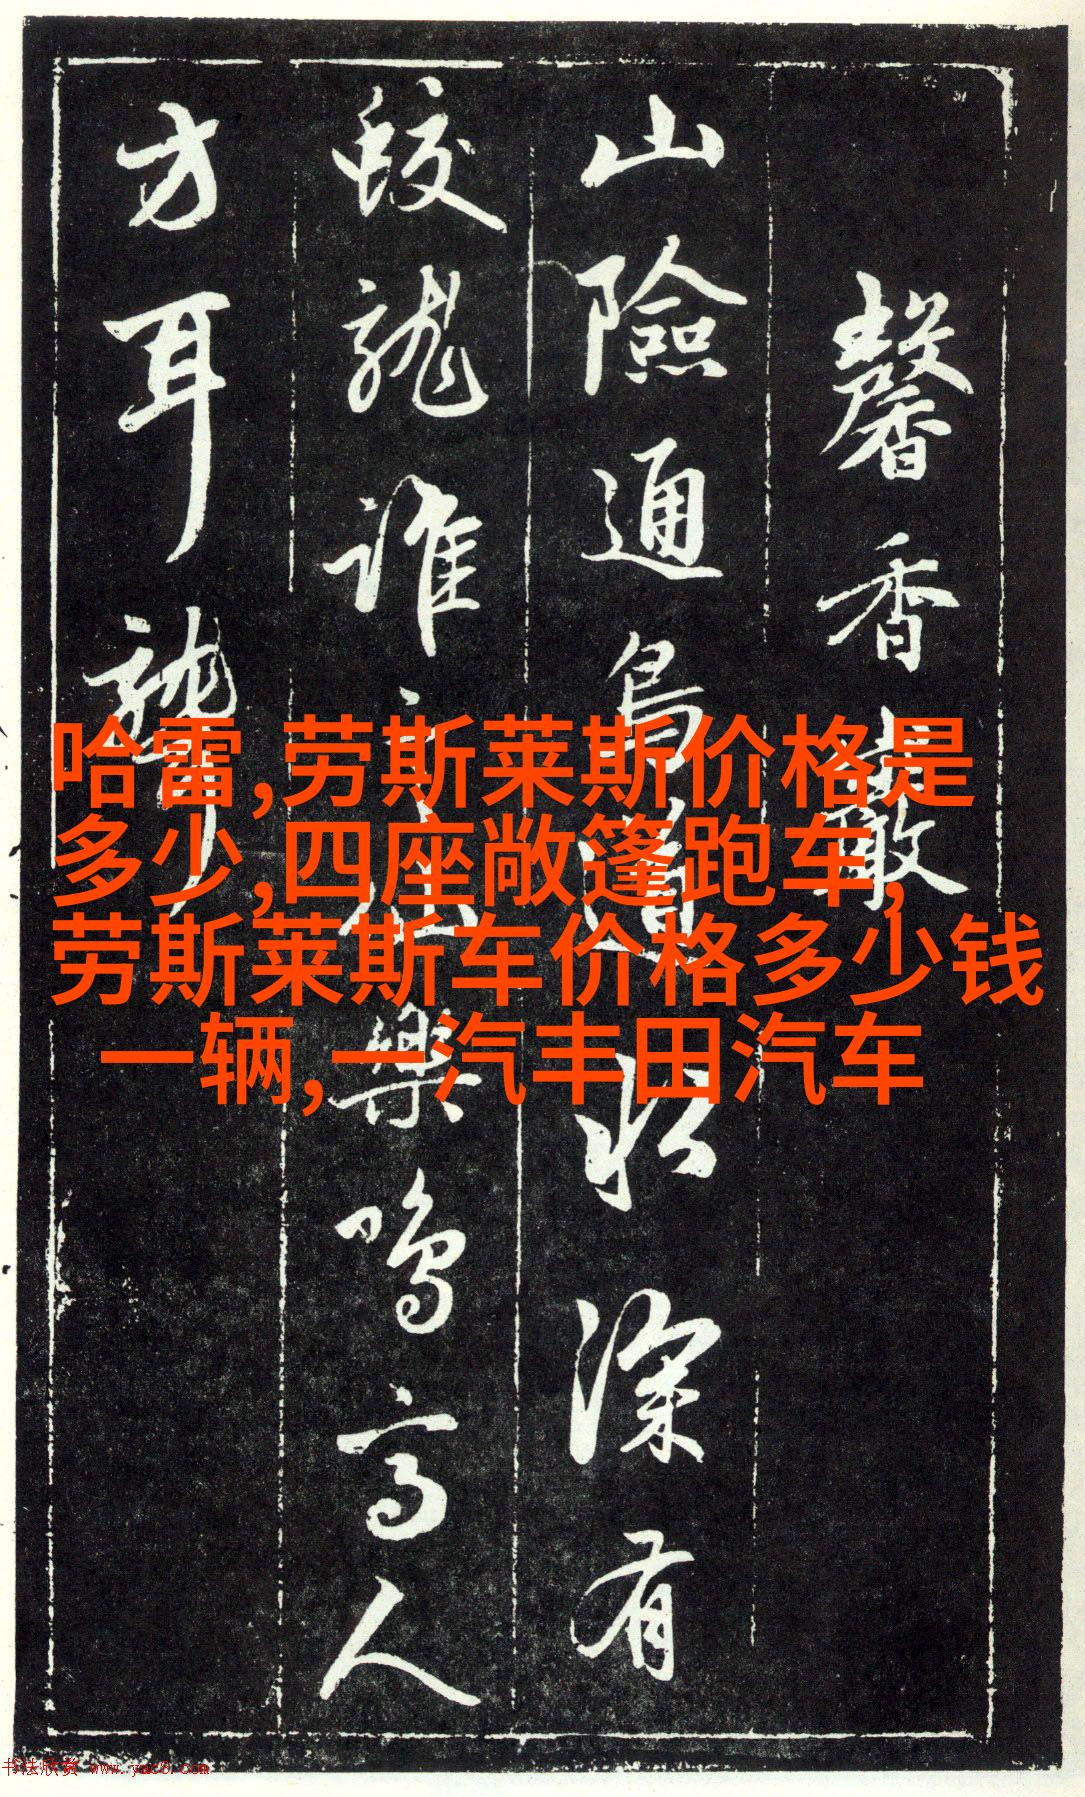 馨香
山險通鳥道水深有
蛟龍誰樂鳴高人
方耳聾
哈雷,劳斯莱斯价格是
多少,四座敞篷跑车,
劳斯莱斯车价格多少钱
一辆,一汽丰田汽车
书法欣赏 www.yac8.com